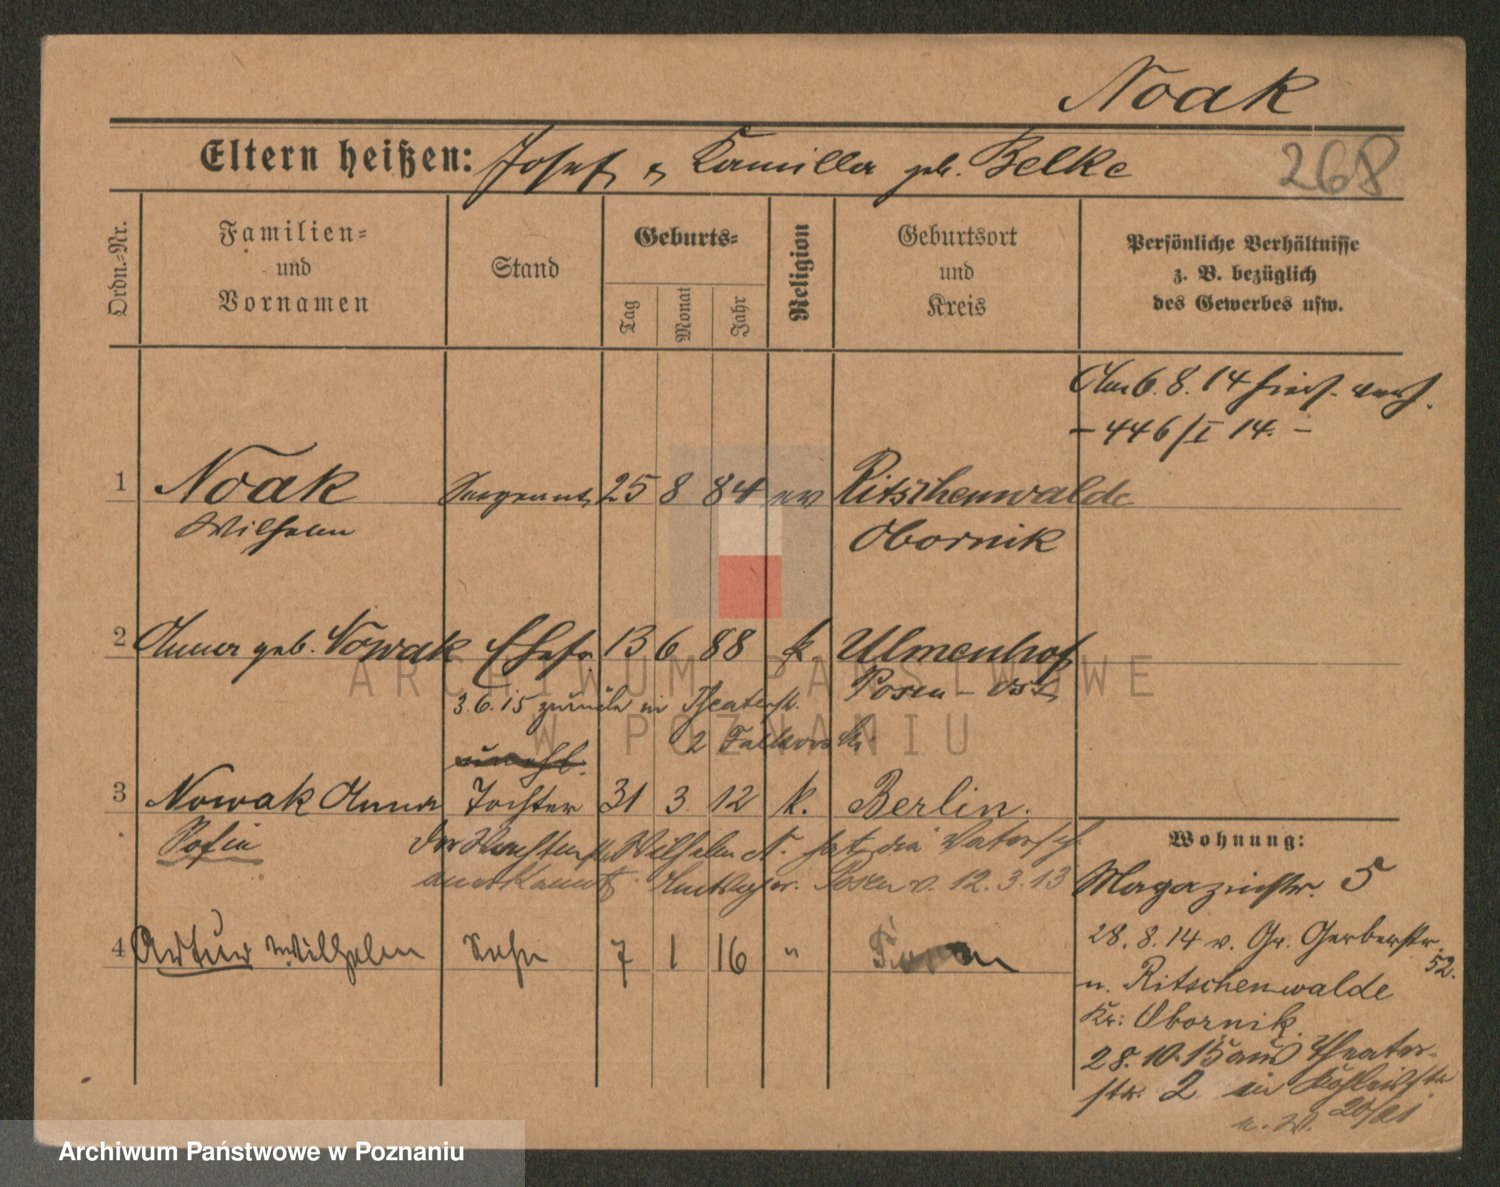 Noak
Eltern heißen: Josef u Kamilla geb. Belke
268
Ordn.-Nr.
Familien-
und
Vornamen
Stand
Geburts-
Tag
Monat
Jahr
Religion
Geburtsort
und
Kreis
Persönliche Verhältnisse
z. B. bezüglich
des Gewerbes usw.
Am 6. 8. 14 hier
– 446/I 14. –
1 Noak Sergeant 25 8 84 ev Ritschenwalde
Wilhelm Obornik
2 Anna geb. Nowak Ehefr 13 6 88 k. Ulmenhof
Posen-Ost
3.6.15 zurück in Theaterstr.
2
unehl.
3 Nowak Anna Tochter 31 3 12 k. Berlin.
Sofia
Der Wilhelm N. hat die Vatersch.
anerkannt. Posen v. 12.3.13
4 Artur Wilhelm Sohn 7 1 16 "
Wohnung:
Magazinstr. 5
28. 8. 14 v. Gr. Gerberstr.
52.
n. Ritschenwalde
Kr: Obornik.
28.10.15 aus Theater-
str. 2 in
20/21
ARCHIWUM PAŃSTWOWE
W POZNANIU
Archiwum Państwowe w Poznaniu